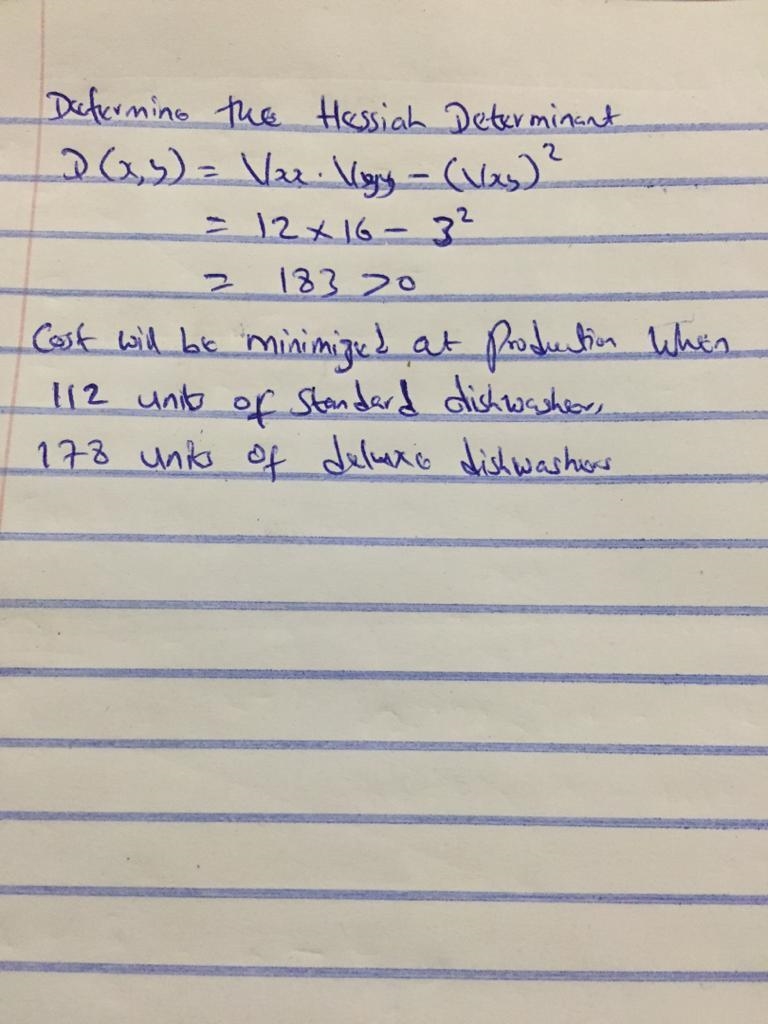 Determine the Hessian Determinant
D(x,y) = Vxx · Vyy - (Vxy)²
= 12 × 16 - 3²
= 183 > 0
Cost will be minimized at production when
112 units of standard dishwashers,
178 units of deluxe dishwashers